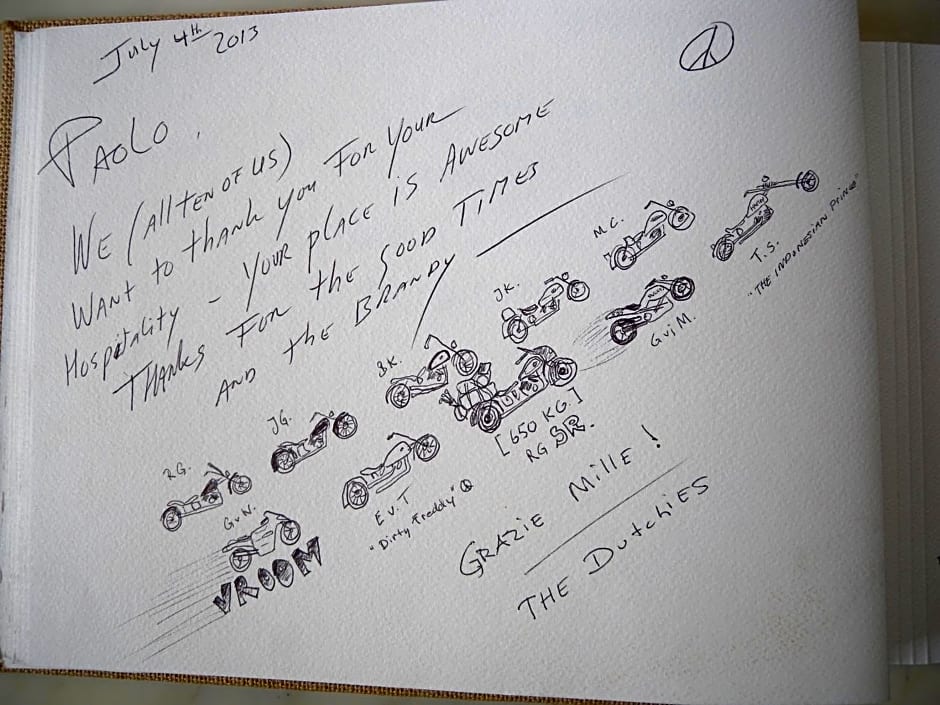 July 4th 2013
PAOLO.
WE (ALL TEN OF US)
WANT to thank you FOR YOUR
HOSPITALITY – YOUR PLACE IS AWESOME
THANKS FOR the GOOD TIMES
AND the BRANDY
T.S.
"THE INDONESIAN PRINCE"
M.C.
G v i M.
J.K.
B.K.
[650 KG.]
RG
J.G.
E v. T
"Dirty Freddy"
R.G.
G v N.
VROOM
GRAZIE MILLE!
THE DUTCHIES